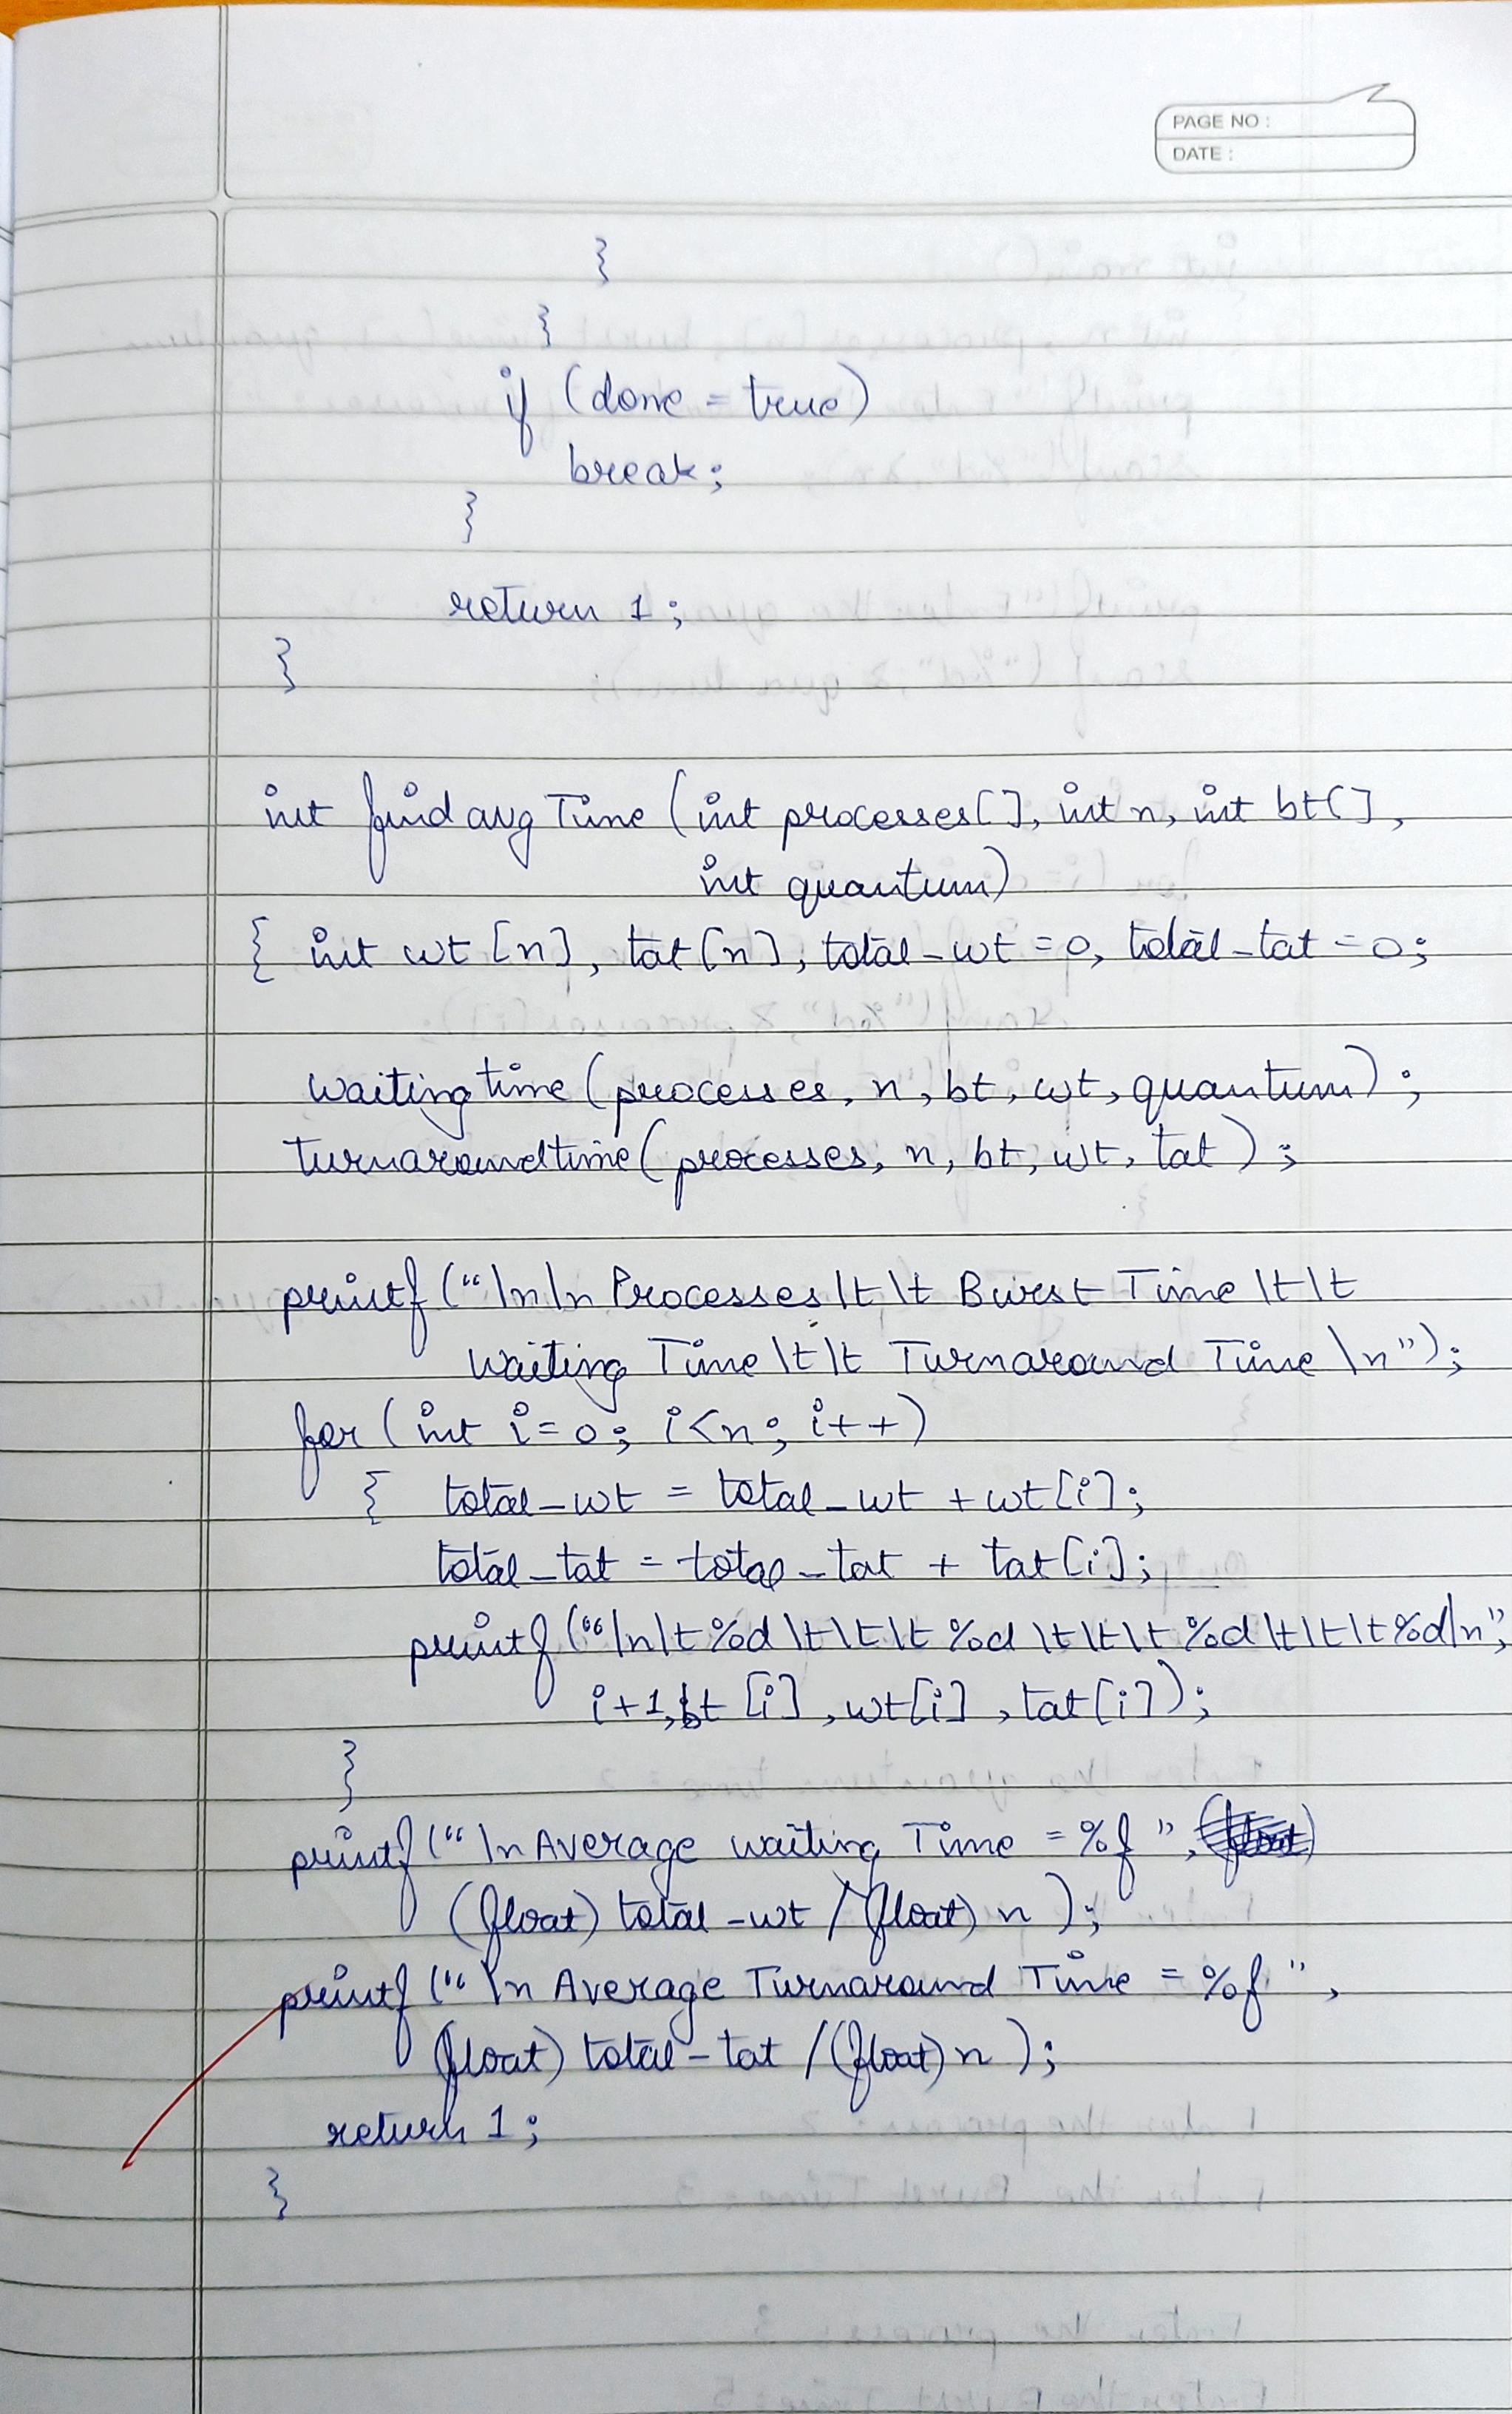 PAGE NO :
DATE :
}
}
if (done = true)
break;
}
return 1;
}
int findavgTime (int processes[], int n, int bt[],
int quantum)
{ int wt [n], tat[n], total_wt = 0, total_tat = 0;
waitingtime (processes, n, bt, wt, quantum);
turnaroundtime (processes, n, bt, wt, tat);
printf ("\n\n Processes \t \t Burst Time \t\t
Waiting Time \t\t Turnaround Time \n");
for (int i=0; i<n; i++)
{ total_wt = total_wt + wt[i];
total_tat = total_tat + tat[i];
printf ("\n\t %d \t\t\t %d \t\t\t %d \t\t\t %d\n",
i+1, bt [i], wt[i], tat[i]);
}
printf ("\n Average waiting Time = %f ",
(float) total_wt / (float) n );
printf ("\n Average Turnaround Time = %f ",
(float) total_tat / (float) n );
return 1;
}